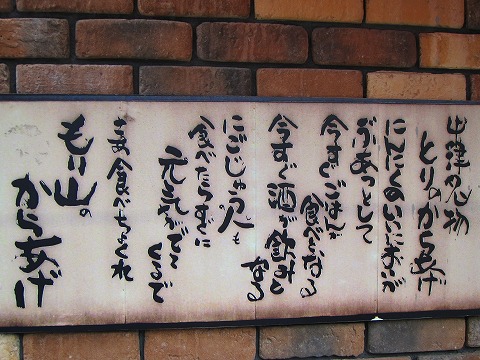 中津名物
とりのからあげ
にんにくのいいにおいが
ぷあっとして
今すぐごはんが
食べとなる
今すぐ酒が飲みと
なる
にごじゅう人も
食べたらすぐに
元気がでて
くるで
まあ食べちょくれ
もり山の
からあげ